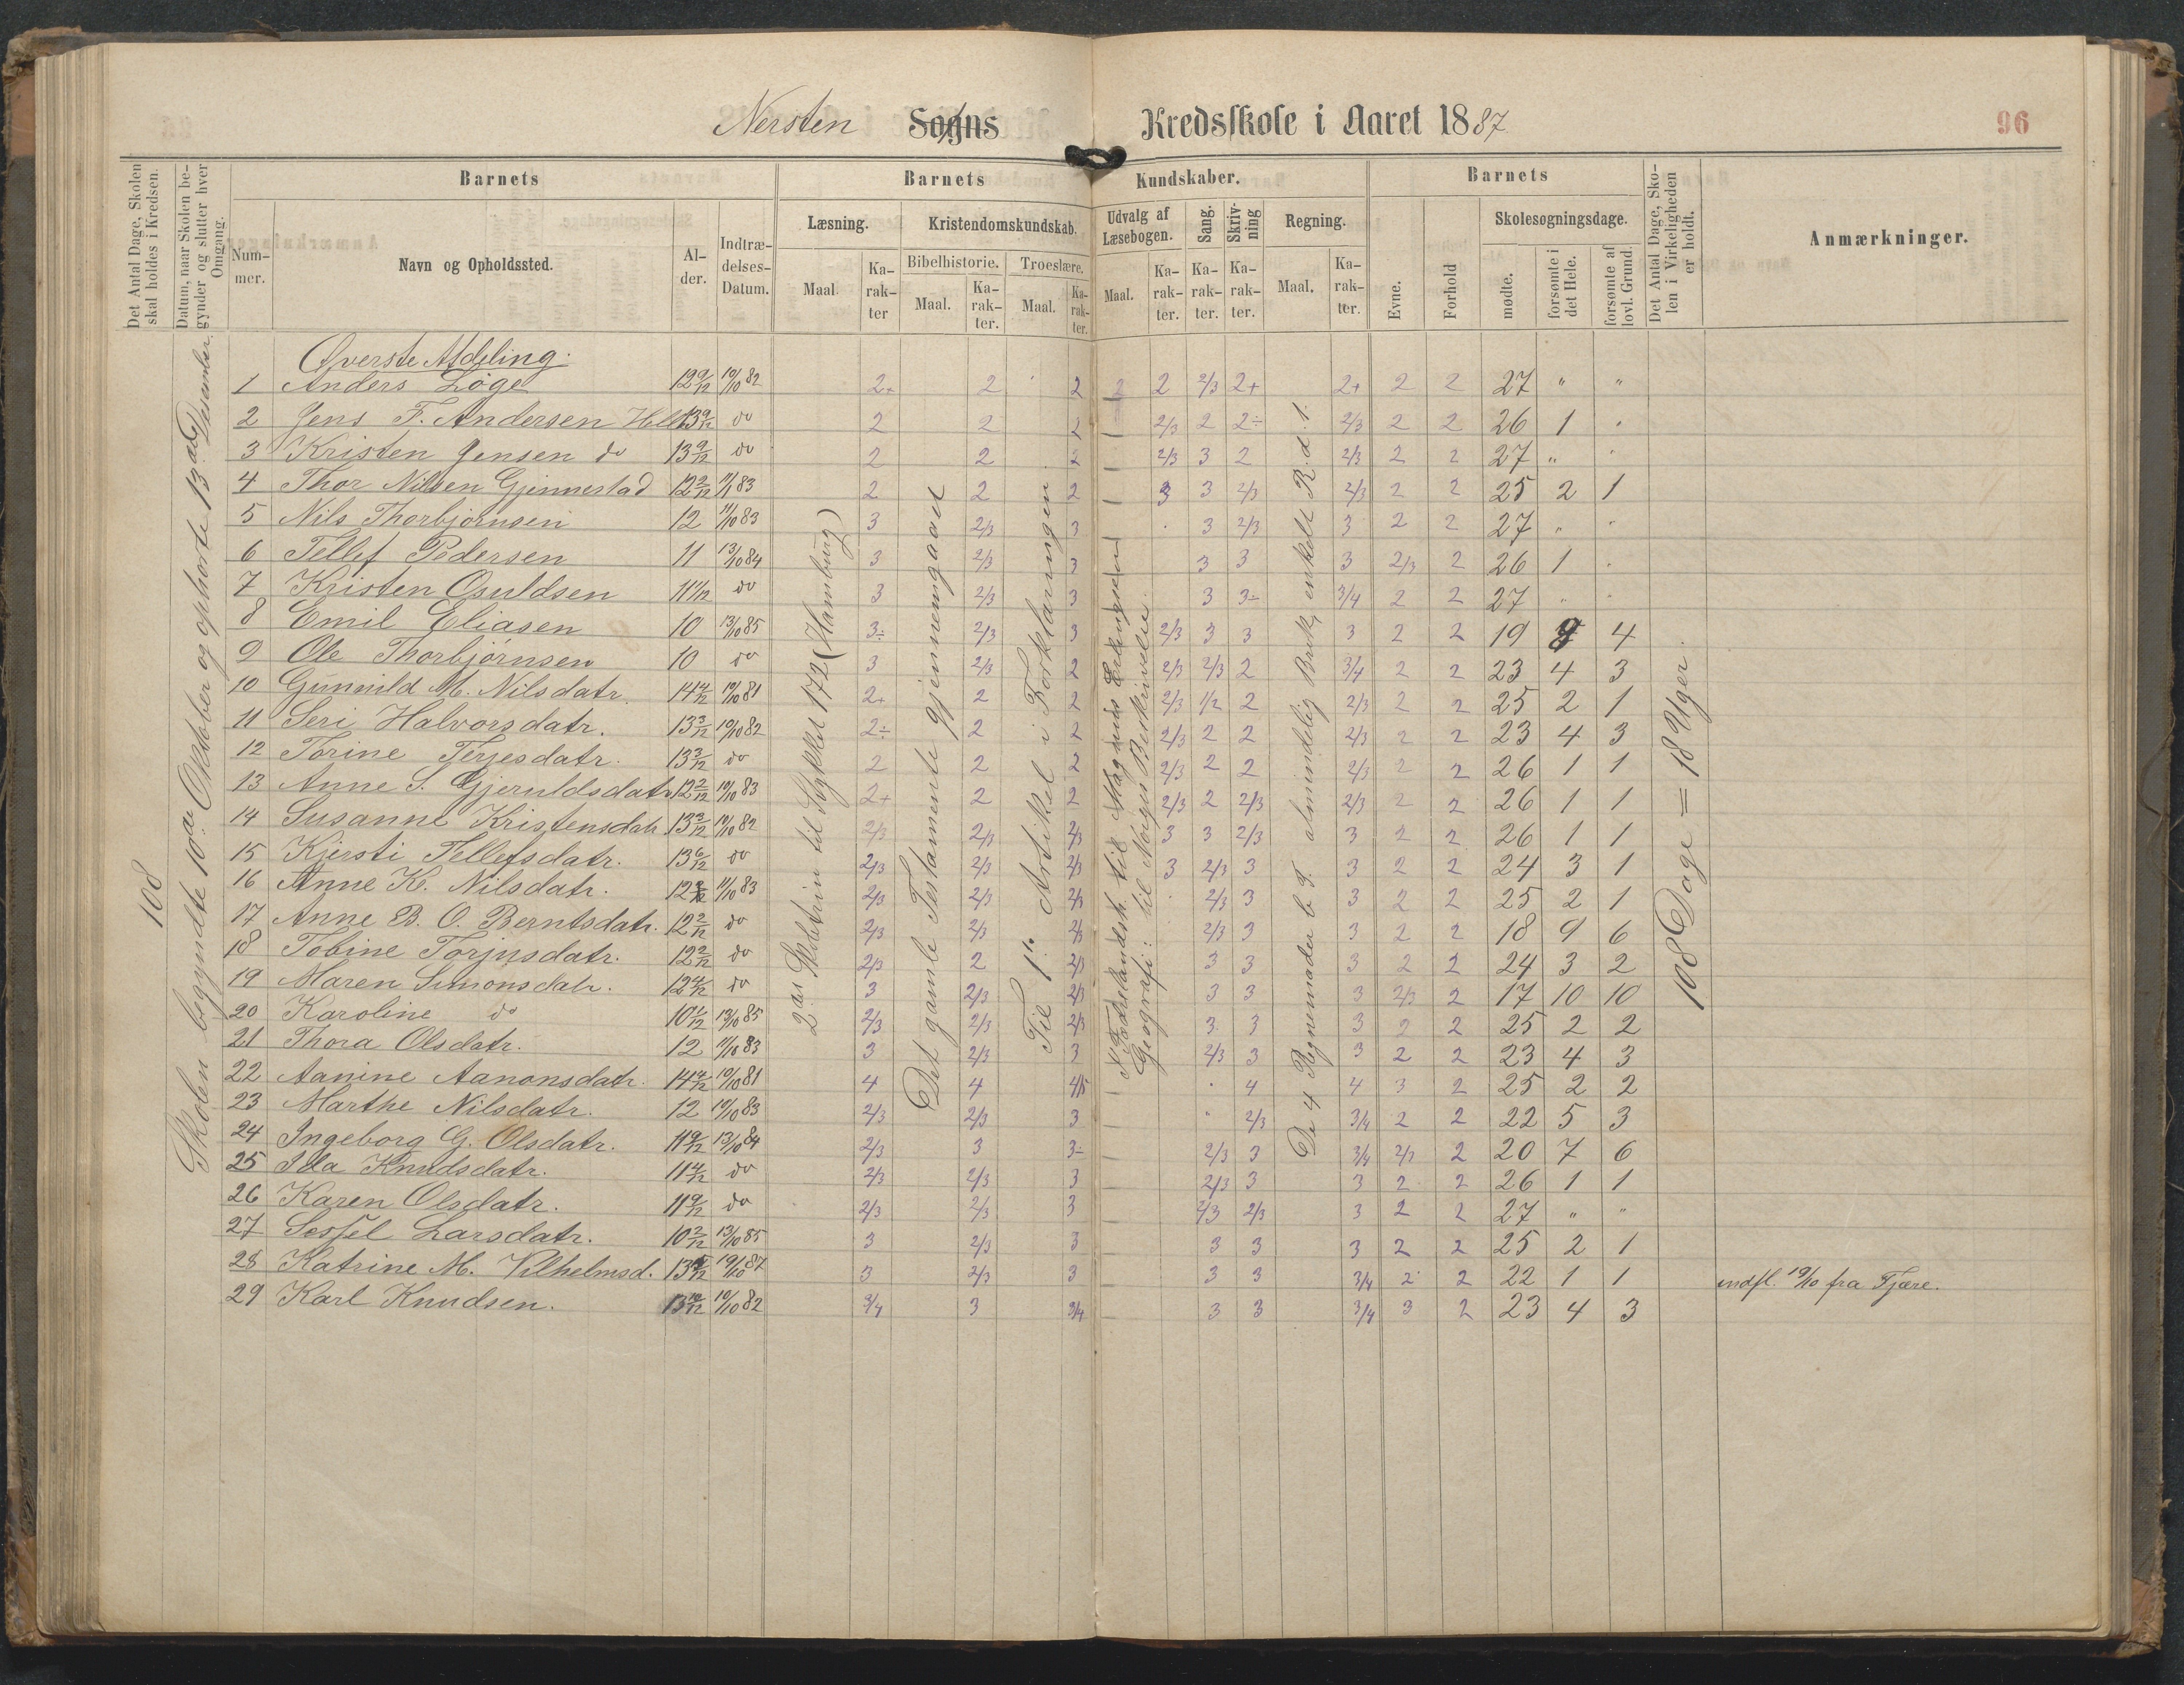 Nersten Sogns Kredsskole i Aaret 1887
96
Det Antal Dage, Skolen skal holdes i Kredsen.
Datum, naar Skolen begynder og slutter hver Omgang.
Barnets
Nummer.
Navn og Opholdssted.
Alder.
Indtrædelses-Datum.
Barnets Kundskaber.
Læsning.
Maal.
Karakter
Kristendomskundskab.
Bibelhistorie.
Maal.
Karakter.
Troeslære.
Maal.
Karakter.
Udvalg af Læsebogen.
Maal.
Karakter.
Sang.
Karakter.
Skrivning
Karakter.
Regning.
Maal.
Karakter.
Barnets
Evne.
Forhold
Skolesøgningsdage.
mødte.
forsømte i det Hele.
forsømte af lovl. Grund.
Det Antal Dage, Skolen i Virkeligheden er holdt.
Anmærkninger.
108
Skolen begyndte 10de Oktober og ophørte 13de Desember.
Øverste Afdeling.
1 Anders Løge 12 9/12 10/10 82 2+ 2 2 2 2 2/3 2+ 2+ 2 2 27 " "
2 Jens F. Andersen 13 9/12 do 2 2 2 2/3 2 2÷ 2/3 2 2 26 1 "
3 Kristen Jensen do 13 9/12 do 2 2 2 2/3 3 2 2/3 2 2 27 " "
4 Thor Nilsen Gjennestad 12 2/12 83 2 2 2 3 3 2/3 2/3 2 2 25 2 1
5 Nils Thorbjørnsen 12 11/10 83 3 2/3 3 3 2/3 3 2 2 27 " "
6 Tellef Pedersen 11 13/10 84 3 2/3 3 3 3 3 2/3 2 26 1 "
7 Kristen Osuldsen 11 1/12 do 3 2/3 3 3 3÷ 3/4 2 2 27 " "
8 Emil Eliasen 10 13/10 85 3÷ 2/3 3 2/3 3 3 3 2 2 19 8 4
9 Ole Thorbjørnsen 10 do 3 2/3 2 2/3 2/3 2 3/4 2 2 23 4 3
10 Gunnild M. Nilsdatr. 14 4/12 10/10 81 2+ 2 2 2/3 1/2 2 2/3 2 2 25 2 1
11 Seri Halvorsdatr. 13 3/12 10/10 82 2÷ 2 2 2/3 2 2 2/3 2 2 23 4 3
12 Torine Terjesdatr. 13 3/12 do 2 2 2 2/3 2 2 2/3 2 2 26 1 1
13 Anne S. Gjeruldsdatr. 12 2/12 10/10 83 2+ 2 2 2/3 2 2/3 2/3 2 2 26 1 1
14 Susanne Kristensdatr. 13 9/12 10/10 82 2/3 2/3 2/3 3 3 2/3 3 2 2 26 1 1
15 Kjersti Tellefsdatr. 13 6/12 do 2/3 2/3 2/3 3 2/3 3 3 2 2 24 3 1
16 Anne K. Nilsdatr. 12 11/10 83 2/3 2/3 2/3 2/3 3 3 2 2 25 2 1
17 Anne B. O. Berntsdatr. 12 2/12 do 2/3 2/3 2/3 2/3 3 3 2 2 18 9 6
18 Tobine Torjusdatr. 12 2/12 do 2/3 2 2/3 3 3 3 2 2 24 3 2
19 Maren Simonsdatr. 12 4/12 do 3 2/3 2/3 3 3 3 2/3 2 17 10 10
20 Karoline do 10 1/12 13/10 85 2/3 2/3 2/3 3 3 3 2 2 25 2 2
21 Thora Olsdatr. 12 11/10 83 3 2/3 3 2/3 3 3 2 2 23 4 3
22 Aanine Aanonsdatr. 14 4/12 10/10 81 4 4 4/5 " 4 4 3 2 25 2 2
23 Marthe Nilsdatr. 12 10/10 83 2/3 2/3 3 " 2/3 3/4 2 2 22 5 3
24 Ingeborg G. Olsdatr. 11 9/12 13/10 84 2/3 3 3÷ 2/3 3 3/4 2/3 2 20 7 6
25 Ida Knudsdatr. 11 4/12 do 2/3 2/3 3 2/3 3 3 2 2 26 1 1
26 Karen Olsdatr. 11 9/12 do 2/3 2/3 3 2/3 2/3 3 2 2 27 " "
27 Sessel Larsdatr. 10 2/12 13/10 85 3 2/3 3 3 3 3 2 2 25 2 1
28 Katrine M. Vilhelmsd. 13 19/10 87 3 2/3 3 3 3 3/4 2 2 22 1 1 indfl. 19/10 fra Fjære.
29 Karl Knudsen. 13 10/12 10/10 82 3/4 3 3/4 3 3 3/4 3 2 23 4 3
2det Skoletrin til Stykket 172 (Hamburg)
Det gamle Testamente gjennemgaaet
Til 1ste Artikel i Forklaringen
Fædrelandsh. til Magnus Erlingsen
Geografi: til Norges Beskrivelse.
De 4 Regnemaader b. T. almindelig Brøk, enkelt R. d. 1.
108 Dage = 18 Uger.